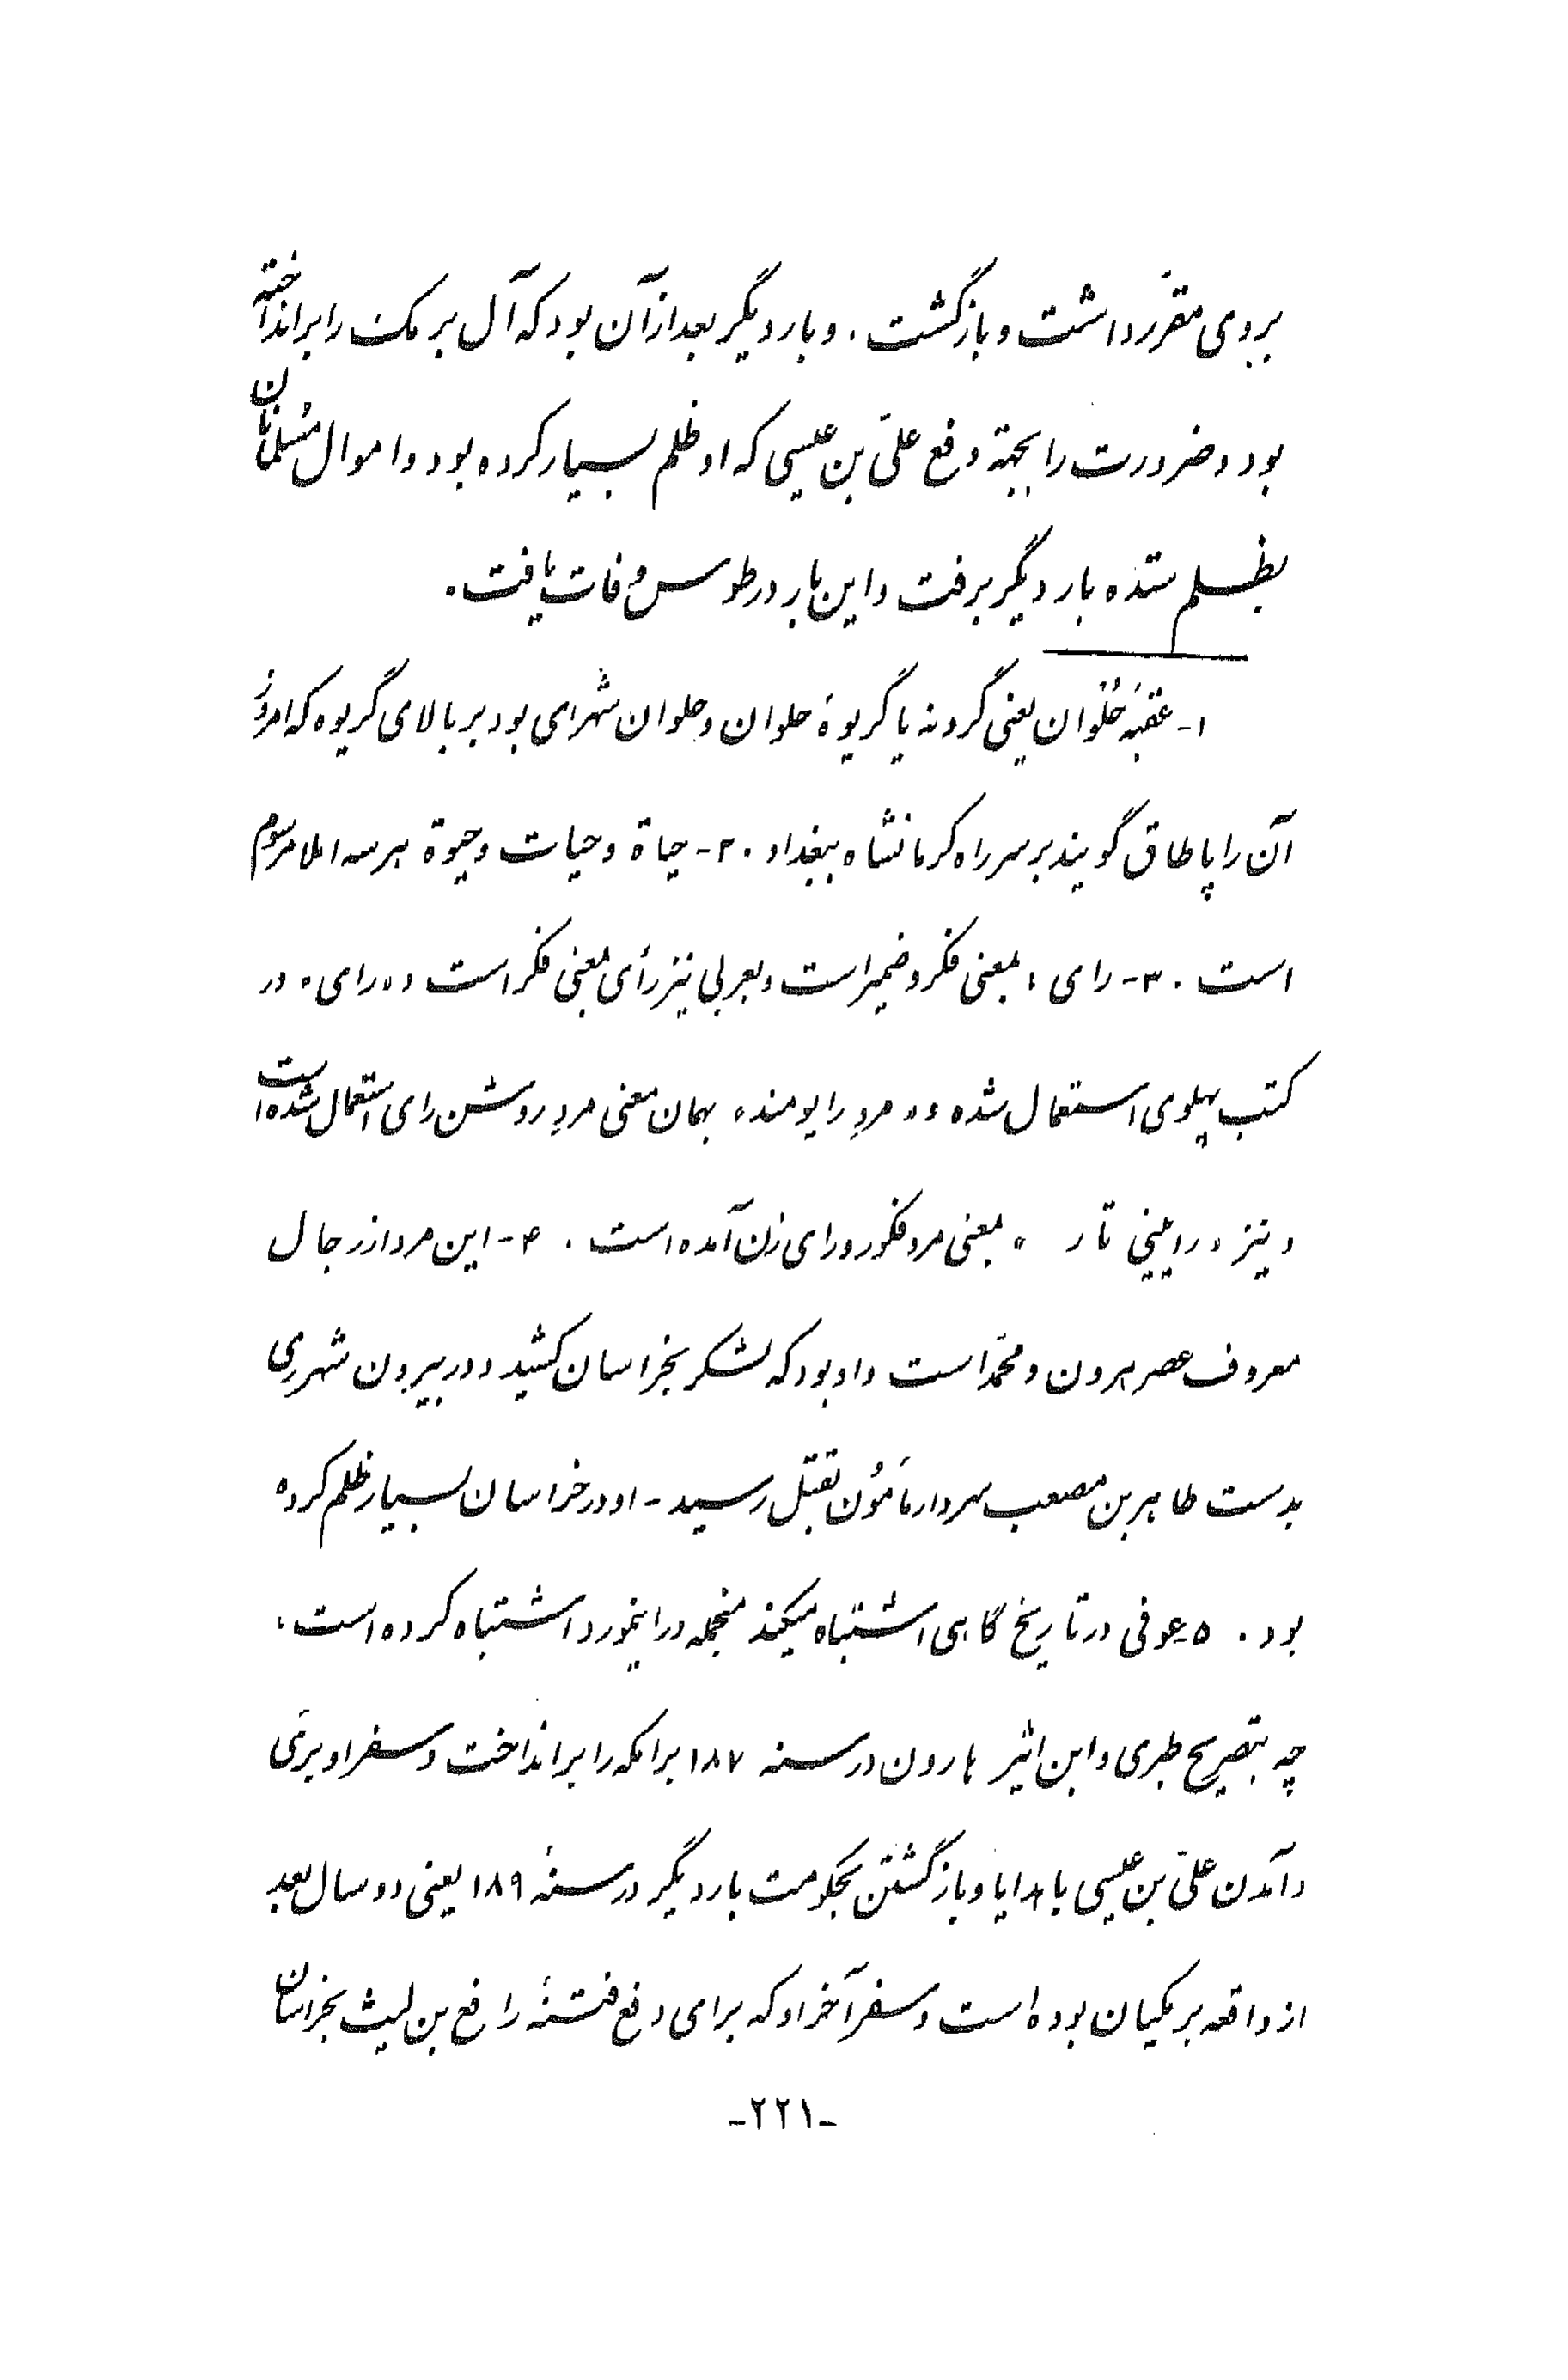 بروی مقرّر داشت و بازگشت. و بار دیگر بعد از آن بود که آل برمک را برانداخته
بود و ضرورت را بجهة دفع علیّ بن عیسی که او ظلم بسیار کرده بود و اموال مُسلمانان
بظلم ستده بار دیگر برفت و این بار در طوس وفات یافت.
۱- عَقَبَه حُلْوان یعنی گردنه یا گریوهٔ حلوان و حلوان شهرای بود بر بالای گریوه که امروز
آن را پاطاق گویند بر سر راه کرمانشاه ببغداد. ۲- حیاة و حیات و حیوة هر سه املا مرسوم
است. ۳- رای: بمعنی فکر و ضمیر است و بعربی نیز رأی بمعنی فکر است و «رای» در
کتب پهلوی استعمال شده و «مردِ رایومند» بهمان معنی مردِ روشن رای استعمال شده است
و نیز «رایینی تار» بمعنی مرد فکور و رای زن آمده است. ۴- این مرد از رجال
معروف عصر هرون و محمّد است و او بود که لشکر بخراسان کشید و در بیرون شهر ری
بدست طاهر بن مصعب سردار مَأمُون بقتل رسید - او در خراسان بسیار ظلم کرده
بود. ۵- عوفی در تاریخ گاهی اشتباه میکند منجمله در اینمورد اشتباه کرده است،
چه بتصریح طبری و ابن اثیر هارون در سنه ۱۸۷ برامکه را برانداخت و سفر او بریّ
و آمدن علیّ بن عیسی با هدایا و بازگشتن بحکومت بار دیگر در سنهٔ ۱۸۹ یعنی دو سال بعد
از واقعه برمکیان بوده است و سفر آخر او که برای دفع فتنهٔ رافع بن لیث بخراسان
-۲۲۱-